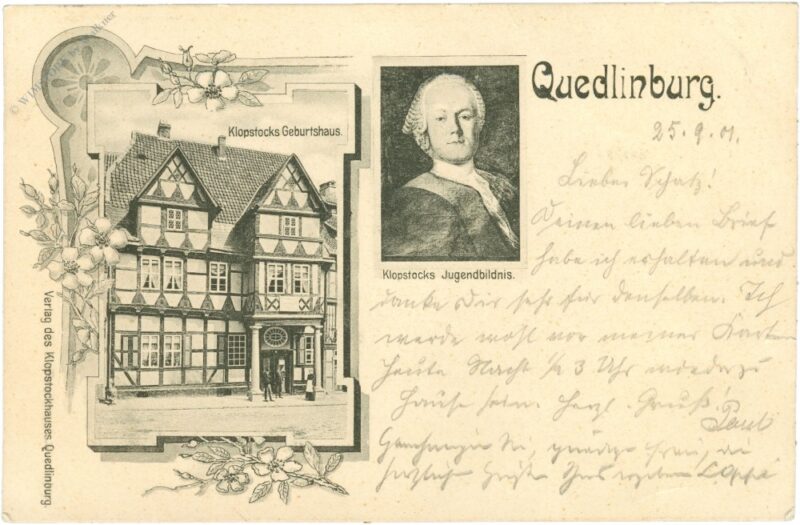 Quedlinburg.
Klopstocks Geburtshaus.
Klopstocks Jugendbildnis.
Verlag des Klopstockhauses Quedlinburg.
25.9.01.
Lieber Schatz!
Deinen lieben Brief
habe ich erhalten und
danke Dir sehr für denselben. Ich
werde wohl vor meiner Karte
heute Nacht ½ 3 Uhr wieder zu
Hause sein. Herzl. Gruß!
Paul
gnädige Frau, die